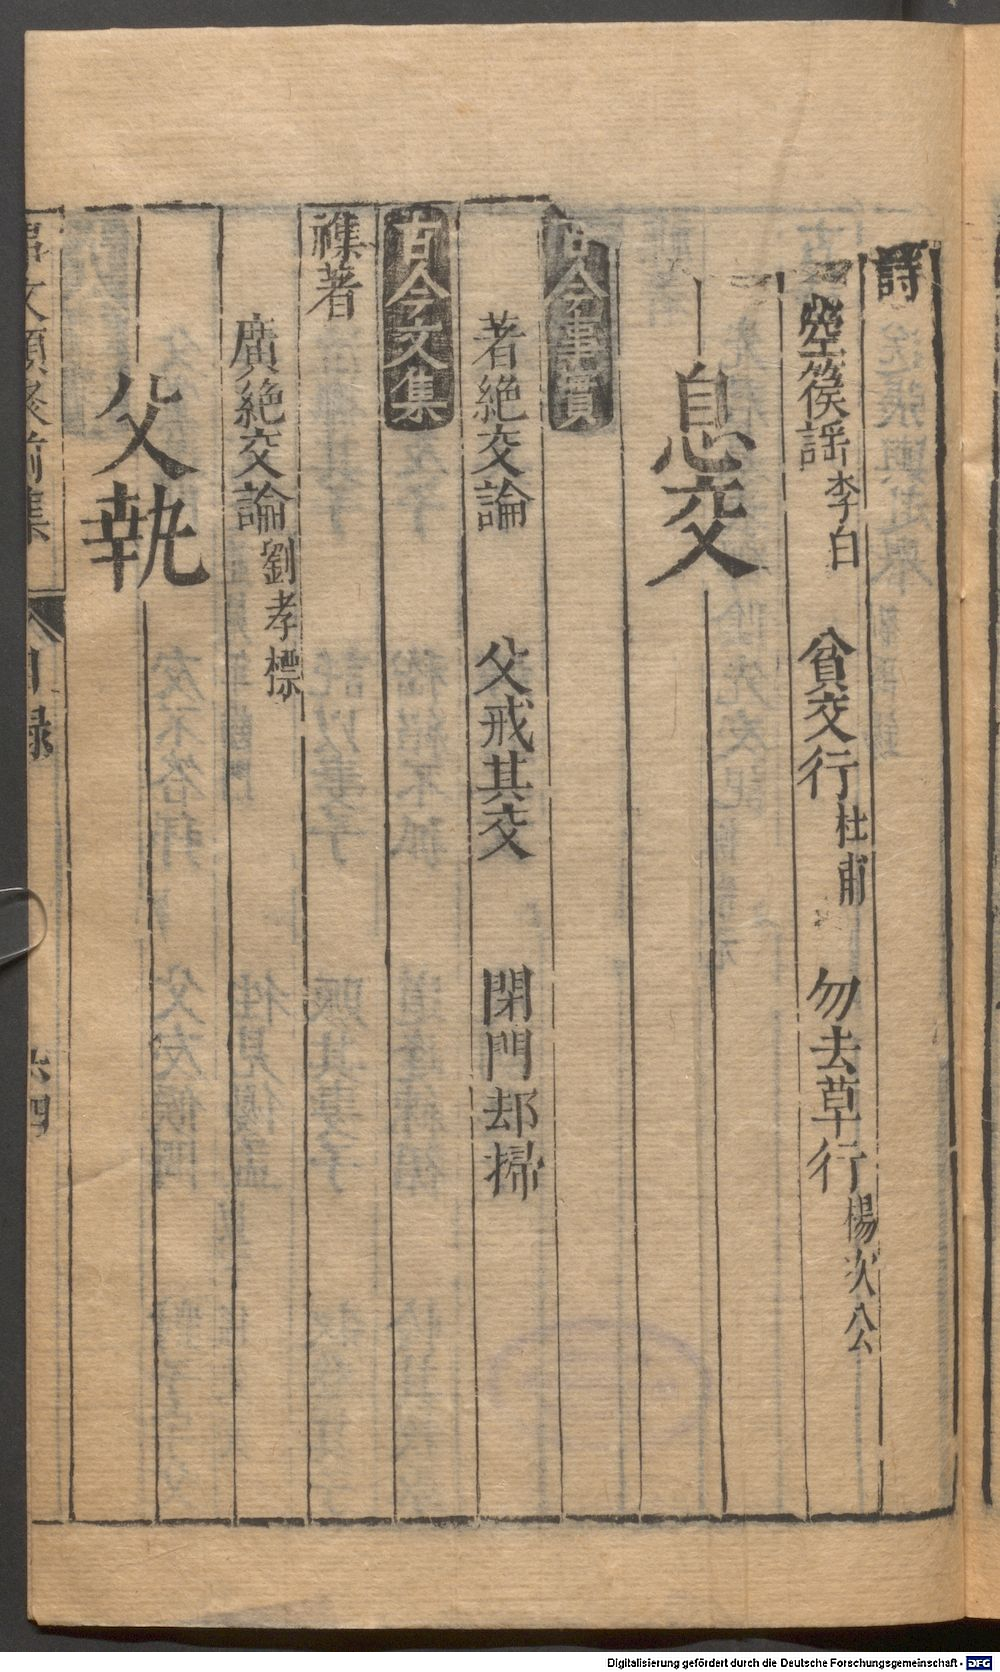 詩
箜篌謡 李白 貧交行 杜甫 勿去草行 楊次公
息交
古今事實
著絶交論 父戒其交 閉門却掃
古今文集
襍著
廣絶交論 劉孝標
父執
文類聚前集 目録 六四
Digitalisierung gefördert durch die Deutsche Forschungsgemeinschaft - DFG